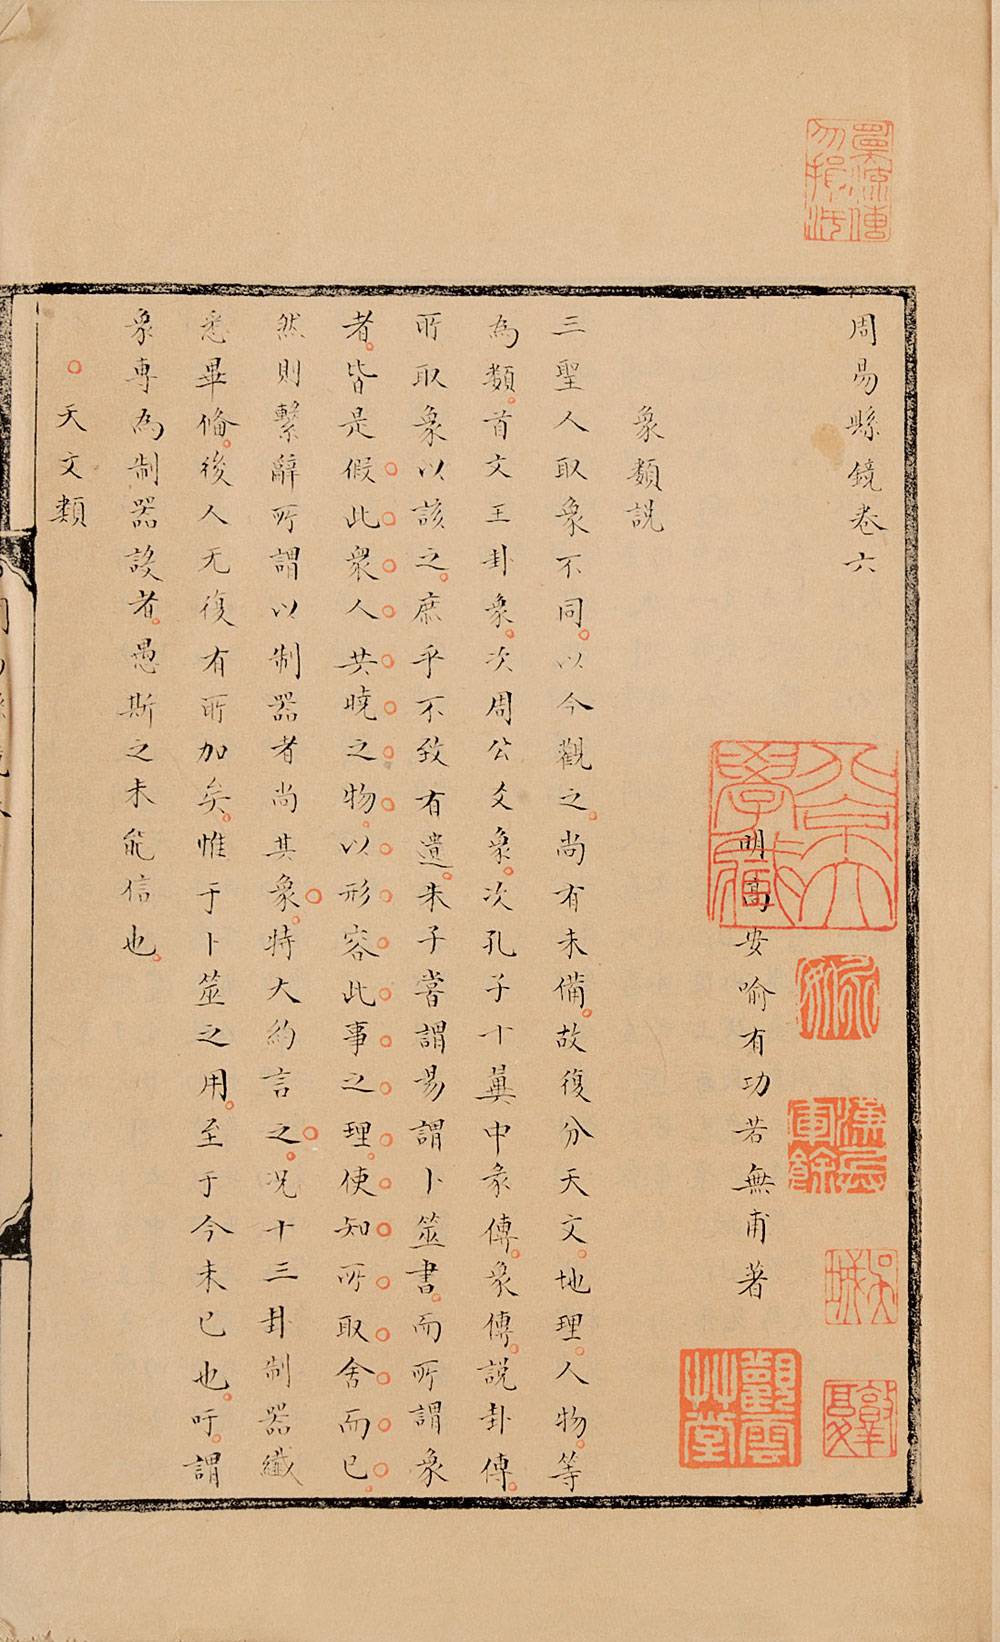 周易縣鏡卷六
明高安喻有功若無甫著
象類説
三聖人取象不同以今觀之尚有未備故復分天文地理人物等
為類首文王卦象次周公爻象次孔子十翼中彖傳象傳説卦傳
所取象以該之庶乎不致有遺朱子嘗謂易謂卜筮書而所謂象
者皆是假此衆人共曉之物以形容此事之理使知所取舍而已
然則繫辭所謂以制器者尚其象特大約言之况十三卦制器纖
悉畢俻後人无復有所加矣惟于卜筮之用至于今未已也吁謂
象專為制器設者愚斯之未能信也
天文類
勿損
觀雲草堂